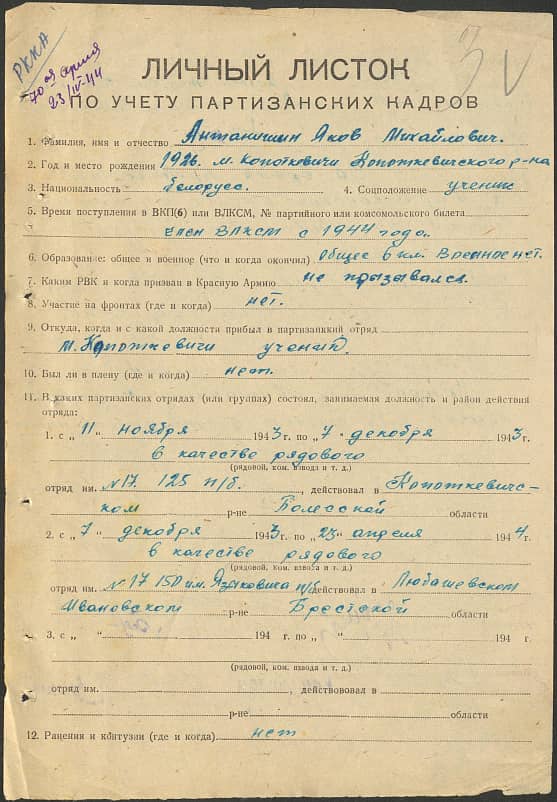 РККА
70ая армия
23/IV-44
ЛИЧНЫЙ ЛИСТОК
ПО УЧЕТУ ПАРТИЗАНСКИХ КАДРОВ
1. Фамилия, имя и отчество Антанишин Яков Михайлович.
2. Год и место рождения 1926. м. Копоткевичи Копоткевичского р-на
3. Национальность белорусс. 4. Соцположение ученик
5. Время поступления в ВКП(б) или ВЛКСМ, № партийного или комсомольского билета
член ВЛКСМ с 1944 года.
6. Образование: общее и военное (что и когда окончил) Общее 6 кл. Военное нет.
7. Каким РВК и когда призван в Красную Армию не призывался.
8. Участие на фронтах (где и когда) нет.
9. Откуда, когда и с какой должности прибыл в партизанкий отряд
м. Копоткевичи ученик.
10. Был ли в плену (где и когда) нет.
11. В каких партизанских отрядах (или группах) состоял, занимаемая должность и район действия
отряда:
1. с „ 11 " ноября 1943 г. по „ 7 " декабря 1943 г.
в качестве рядового
(рядовой, ком. взвода и т. д.)
отряд им. №17. 125 п/б. , действовал в Копоткевичс-
ком р-не Полесской области
2. с „ 7 " декабря 1943 г. по „ 23 " апреля 1944 г.
в качестве рядового
(рядовой, ком. взвода и т. д.)
отряд им. №17 150 им. п/б действовал в Любашевском
Ивановском р-не Брестской области
3. с „ " 194 г. по „ " 194 г.
(рядовой, ком. взвода и т. д.)
отряд им. , действовал в
р-не области
12. Ранения и контузии (где и когда) нет